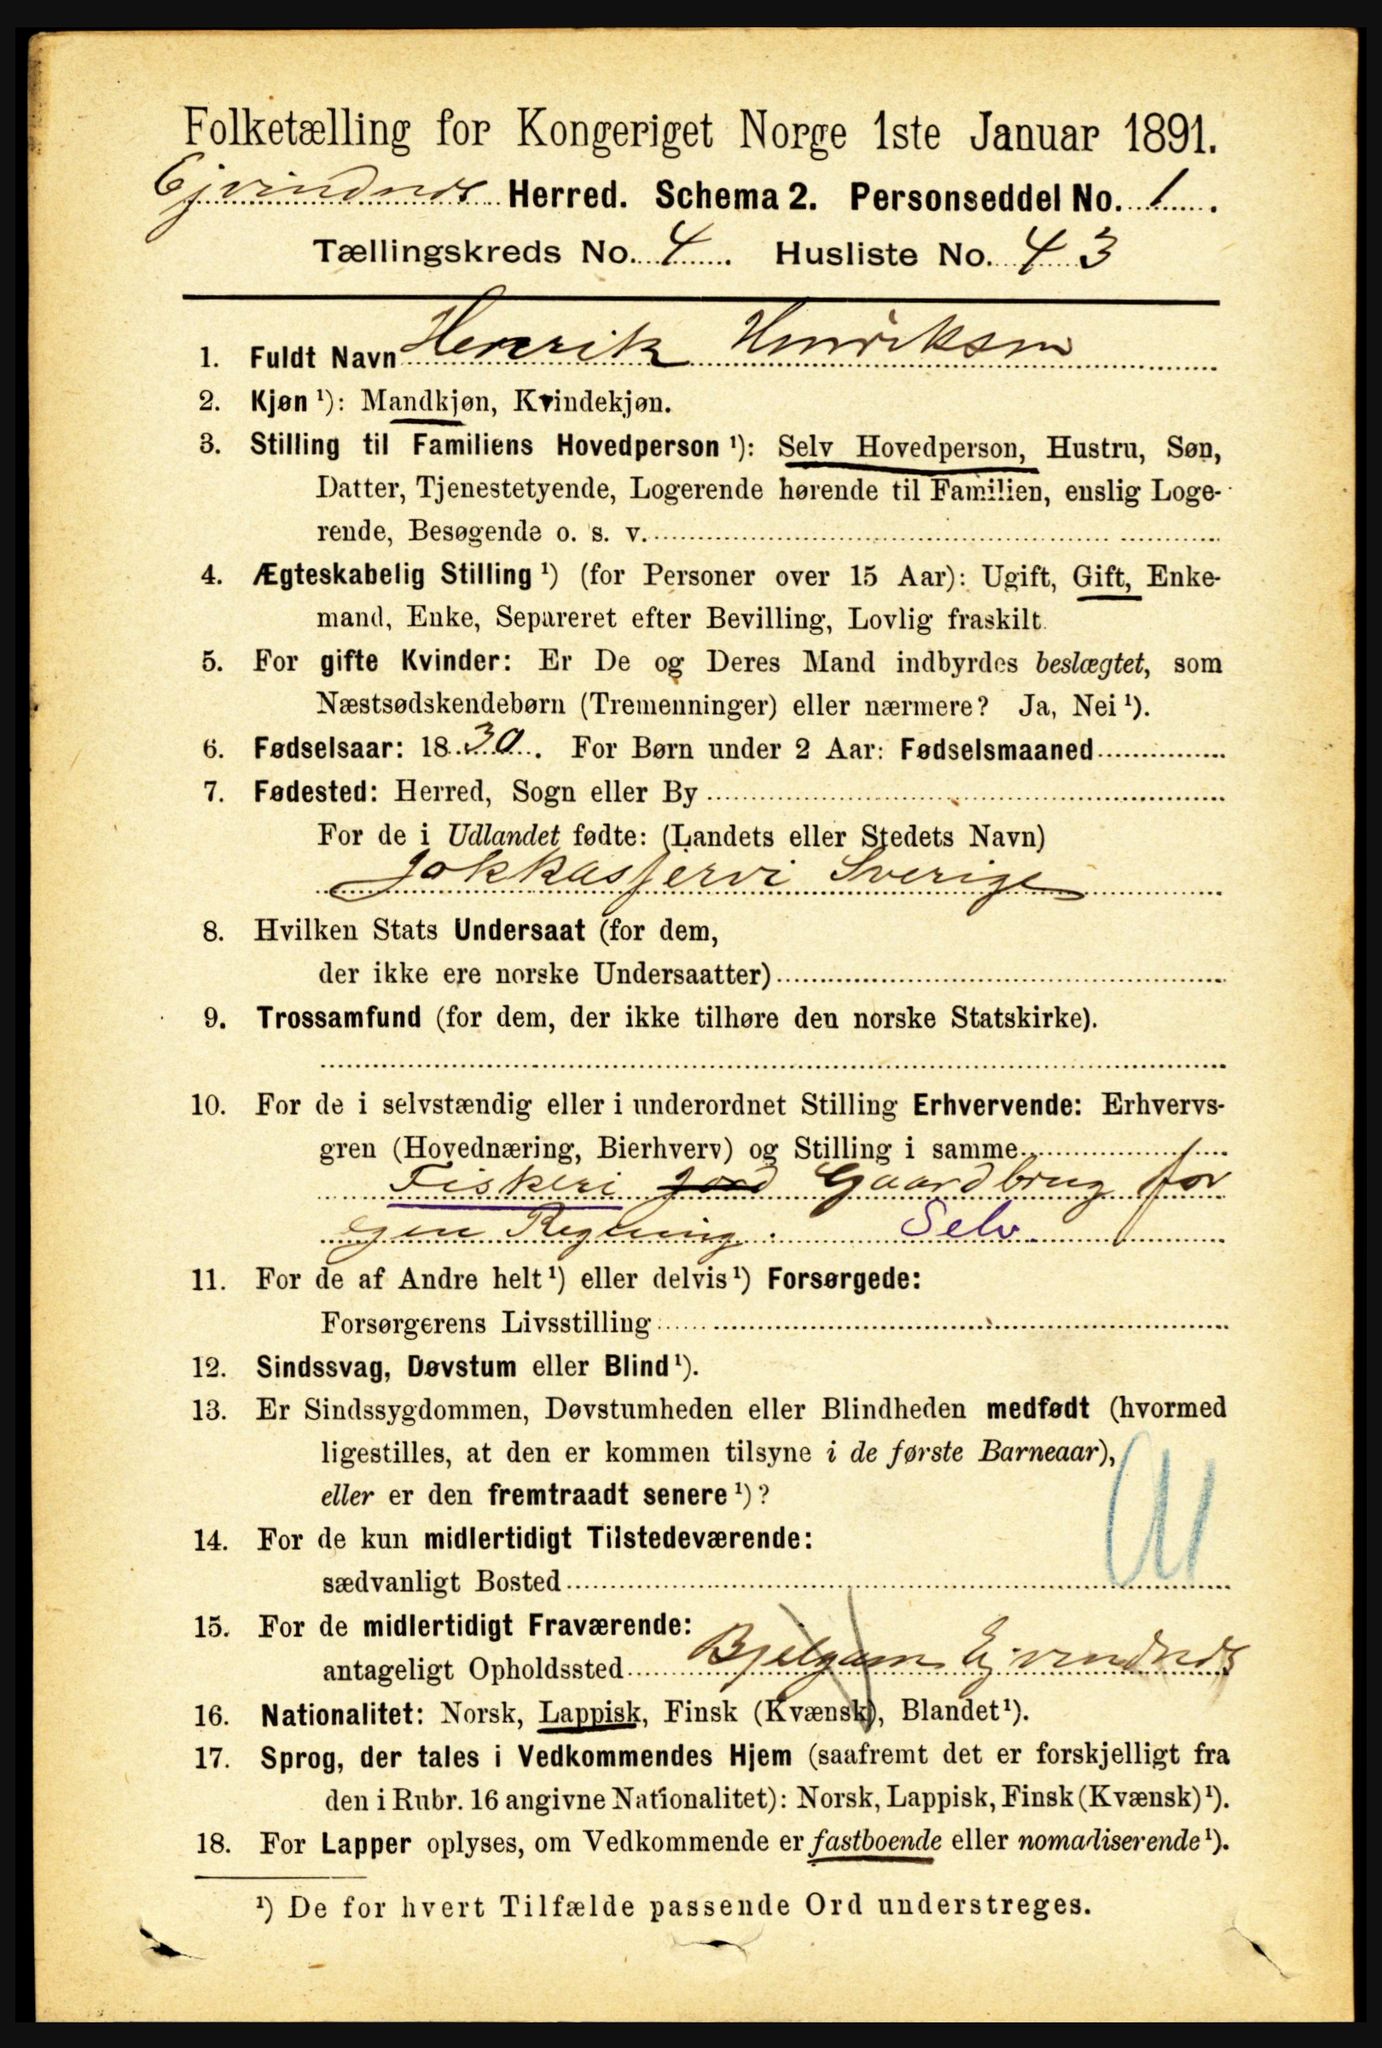 Folketælling for Kongeriget Norge 1ste Januar 1891.
Ejvindnes Herred. Schema 2. Personseddel No. 1.
Tællingskreds No. 4. Husliste No. 43
1. Fuldt Navn Henrik Henriksen
2. Kjøn ¹): Mandkjøn, Kvindekjøn.
3. Stilling til Familiens Hovedperson ¹): Selv Hovedperson, Hustru, Søn,
Datter, Tjenestetyende, Logerende hørende til Familien, enslig Loge-
rende, Besøgende o. s. v.
4. Ægteskabelig Stilling ¹) (for Personer over 15 Aar): Ugift, Gift, Enke-
mand, Enke, Separeret efter Bevilling, Lovlig fraskilt.
5. For gifte Kvinder: Er De og Deres Mand indbyrdes beslægtet, som
Næstsødskendebørn (Tremenninger) eller nærmere? Ja, Nei ¹).
6. Fødselsaar: 1830. For Børn under 2 Aar: Fødselsmaaned
7. Fødested: Herred, Sogn eller By
For de i Udlandet fødte: (Landets eller Stedets Navn)
Jokkasjervi Sverige
8. Hvilken Stats Undersaat (for dem,
der ikke ere norske Undersaatter)
9. Trossamfund (for dem, der ikke tilhøre den norske Statskirke).
10. For de i selvstændig eller i underordnet Stilling Erhvervende: Erhvervs-
gren (Hovednæring, Bierhverv) og Stilling i samme
Fiskeri Jord Gaardbrug for
egen Regning. Selv
11. For de af Andre helt ¹) eller delvis ¹) Forsørgede:
Forsørgerens Livsstilling
12. Sindssvag, Døvstum eller Blind ¹).
13. Er Sindssygdommen, Døvstumheden eller Blindheden medfødt (hvormed
ligestilles, at den er kommen tilsyne i de første Barneaar),
eller er den fremtraadt senere ¹)?
14. For de kun midlertidigt Tilstedeværende:
sædvanligt Bosted
15. For de midlertidigt Fraværende:
antageligt Opholdssted Ejvindnes
16. Nationalitet: Norsk, Lappisk, Finsk (Kvænsk), Blandet ¹).
17. Sprog, der tales i Vedkommendes Hjem (saafremt det er forskjelligt fra
den i Rubr. 16 angivne Nationalitet): Norsk, Lappisk, Finsk (Kvænsk) ¹).
18. For Lapper oplyses, om Vedkommende er fastboende eller nomadiserende ¹).
¹) De for hvert Tilfælde passende Ord understreges.